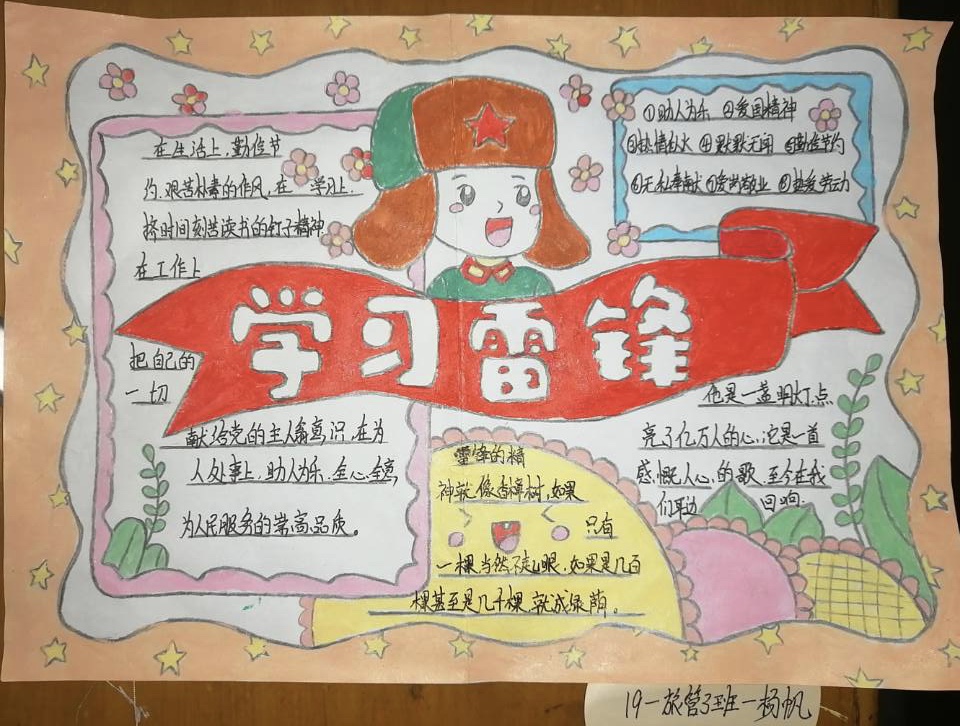 在生活上，勤俭节
约、艰苦朴素的作风，在 学习上，
挤时间刻苦读书的钉子精神
在工作上
学习雷锋
把自己的
一切
献给党的主人翁意识，在为
人处事上，助人为乐、全心全意
为人民服务的崇高品质。
①助人为乐 ②爱国精神
③热情似火 ④默默无闻 ⑤勤俭节约
⑥无私奉献 ⑦爱岗敬业 ⑧热爱劳动
他是一盏明灯，点
亮了亿万人的心，它是一首
感慨人心的歌，至今在我
们耳边 回响
雷锋的精
神就像香樟树，如果
只有
一棵当然不起眼，如果是几百
棵甚至是几千棵，就成绿荫。
19一旅管3班一杨帆